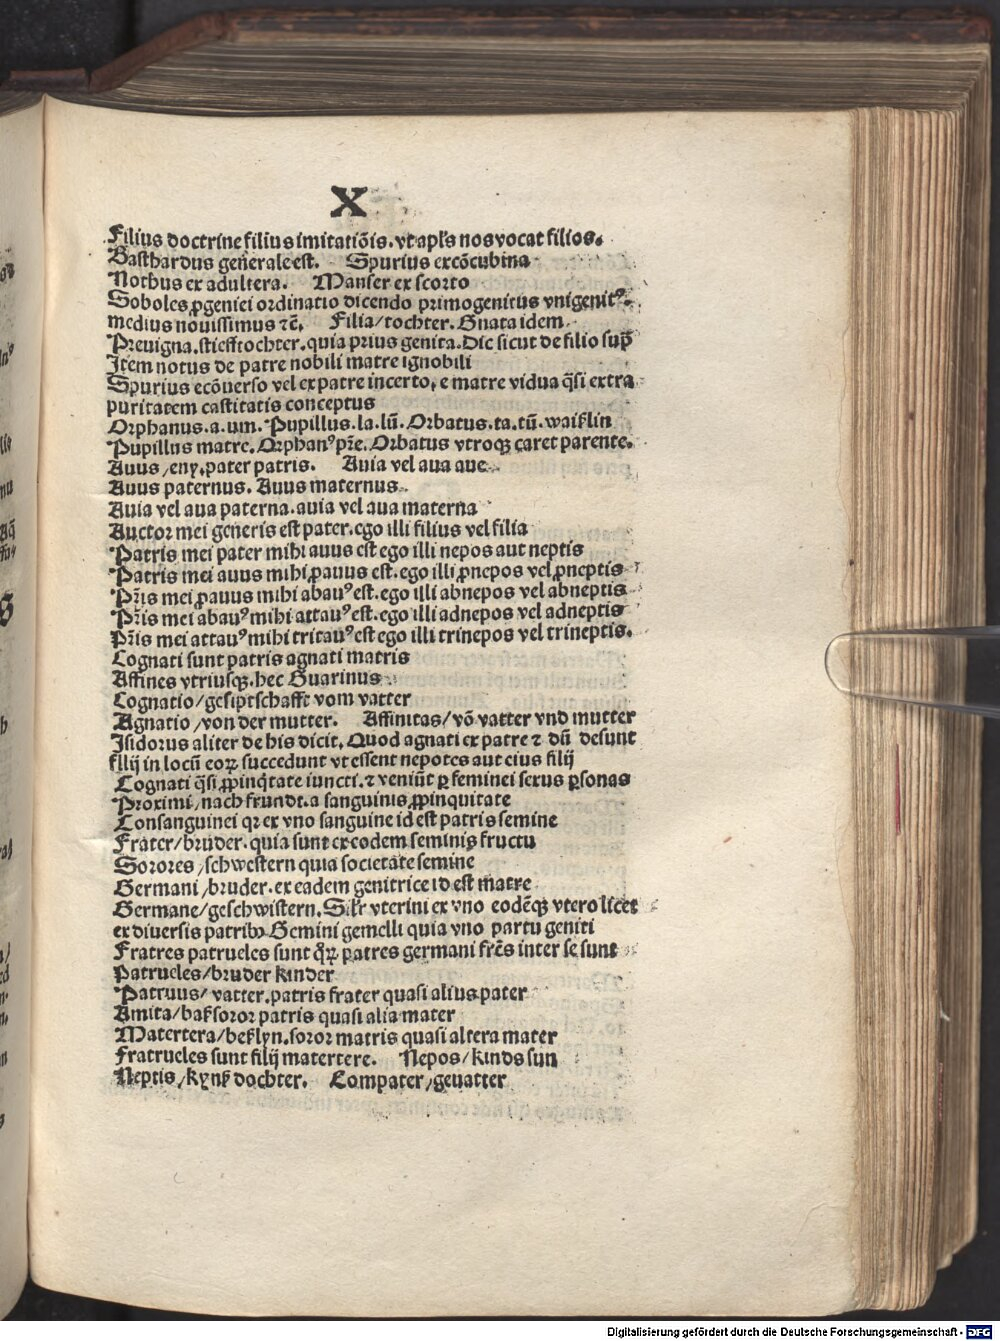 X
Filius doctrine filius imitatiōis. vt apl's nos vocat filios.
Basthardus generale est. Spurius ex cōcubina
Nothus ex adultera. Manser ex scorto
Soboles ꝓgeniei ordinatio dicendo primogenitus vnigenitꝰ.
medius nouissimus ⁊c̄. Filia/tochter. Gnata idem
Preuigna.stiefftochter.quia prius genita.Dic sicut de filio sup̄
Item notus de patre nobili matre ignobili
Spurius ecōuerso vel ex patre incerto, e matre vidua q̄si extra
puritatem castitatis conceptus
Orphanus.a.um. Pupillus.la.lū. Orbatus.ta.tū.waißlin
Pupillus matre. Orphanꝰ pr̄e. Orbatus vtroqꝫ caret parente.
Auus/eny.pater patris. Auia vel aua aue
Auus paternus. Auus maternus
Auia vel aua paterna.auia vel aua materna
Auctor mei generis est pater.ego illi filius vel filia
Patris mei pater mihi auus est ego illi nepos aut neptis
Patris mei auus mihi ꝓauus est.ego illi ꝓnepos vel ꝓneptis
Pr̄is mei ꝓauus mihi abauꝰ est.ego illi abnepos vel abneptis
Pr̄is mei abauꝰ mihi attauꝰ est.ego illi adnepos vel adneptis
Pr̄is mei attauꝰ mihi tritauꝰ est ego illi trinepos vel trineptis.
Cognati sunt patris agnati matris
Affines vtriusqꝫ.hec Guarinus
Cognatio/gesiptschafft vom vatter
Agnatio/von der mutter. Affinitas/vō vatter vnd mutter
Isidorus aliter de his dicit. Quod agnati ex patre ⁊ dū desunt
filij in locū eoꝝ succedunt vt essent nepotes aut eius filij
Cognati q̄si ꝓpinq̇tate iuncti.⁊ veniūt ꝑ feminei sexus ꝑsonas
Proximi/nach frundt.a sanguinis ꝓpinquitate
Consanguinei qꝛ ex vno sanguine id est patris semine
Frater/bruder.quia sunt ex eodem seminis fructu
Sorores/schwestern quia societate semine
Germani/bruder.ex eadem genitrice id est matre
Germane/geschwistern. Sil'r vterini ex vno eodēqꝫ vtero licet
ex diuersis patribꝫ Gemini gemelli quia vno partu geniti
Fratres patrueles sunt q̄ꝝ patres germani fr̄es inter se sunt
Patrueles/bruder kinder
Patruus/vatter.patris frater quasi alius pater
Amita/baß soror patris quasi alia mater
Matertera/beßlyn.soror matris quasi altera mater
Fratrueles sunt filij matertere. Nepos/kinds sun
Neptis/kyntz dochter. Compater/geuatter
Digitalisierung gefördert durch die Deutsche Forschungsgemeinschaft - DFG